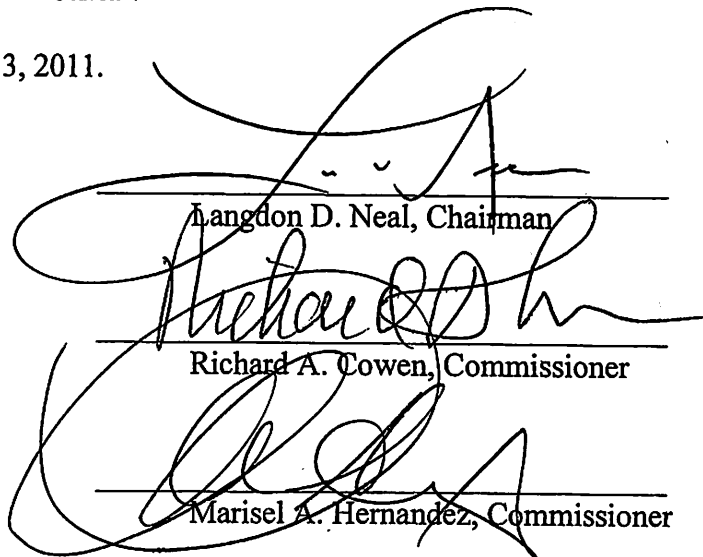 3, 2011.
Langdon D. Neal, Chairman
Richard A. Cowen, Commissioner
Marisel A. Hernandez, Commissioner